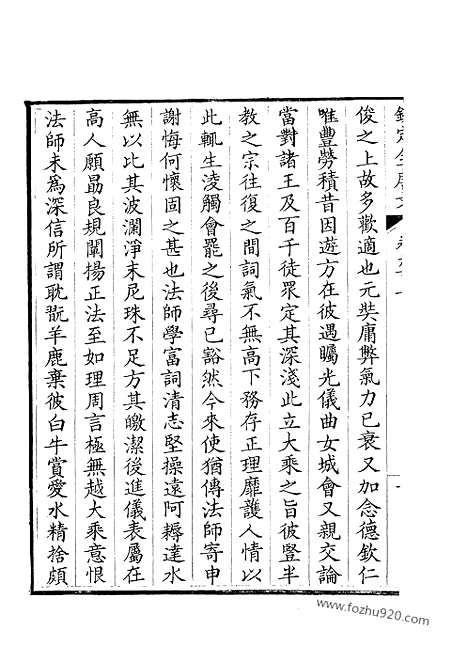 欽定全唐文
俊之上故多歡適也元奘庸弊氣力已衰又加念德欽仁
唯豐勞積昔因遊方在彼遇矚光儀曲女城會又親交論
當對諸王及百千徒眾定其深淺此立大乘之旨彼豎半
教之宗往復之間詞氣不無高下務存正理靡護人情以
此輒生淩觸會罷之後尋已豁然今來使猶傳法師寄申
謝悔何懷固之甚也法師學富詞清志堅操遠阿耨達水
無以比其波瀾淨末尼珠不足方其皦潔後進儀表屬在
高人願勗良規闡揚正法至如理周言極無越大乘意恨
法師未爲深信所謂耽翫羊鹿棄彼白牛賞愛水精捨頗
www.fozhu920.com